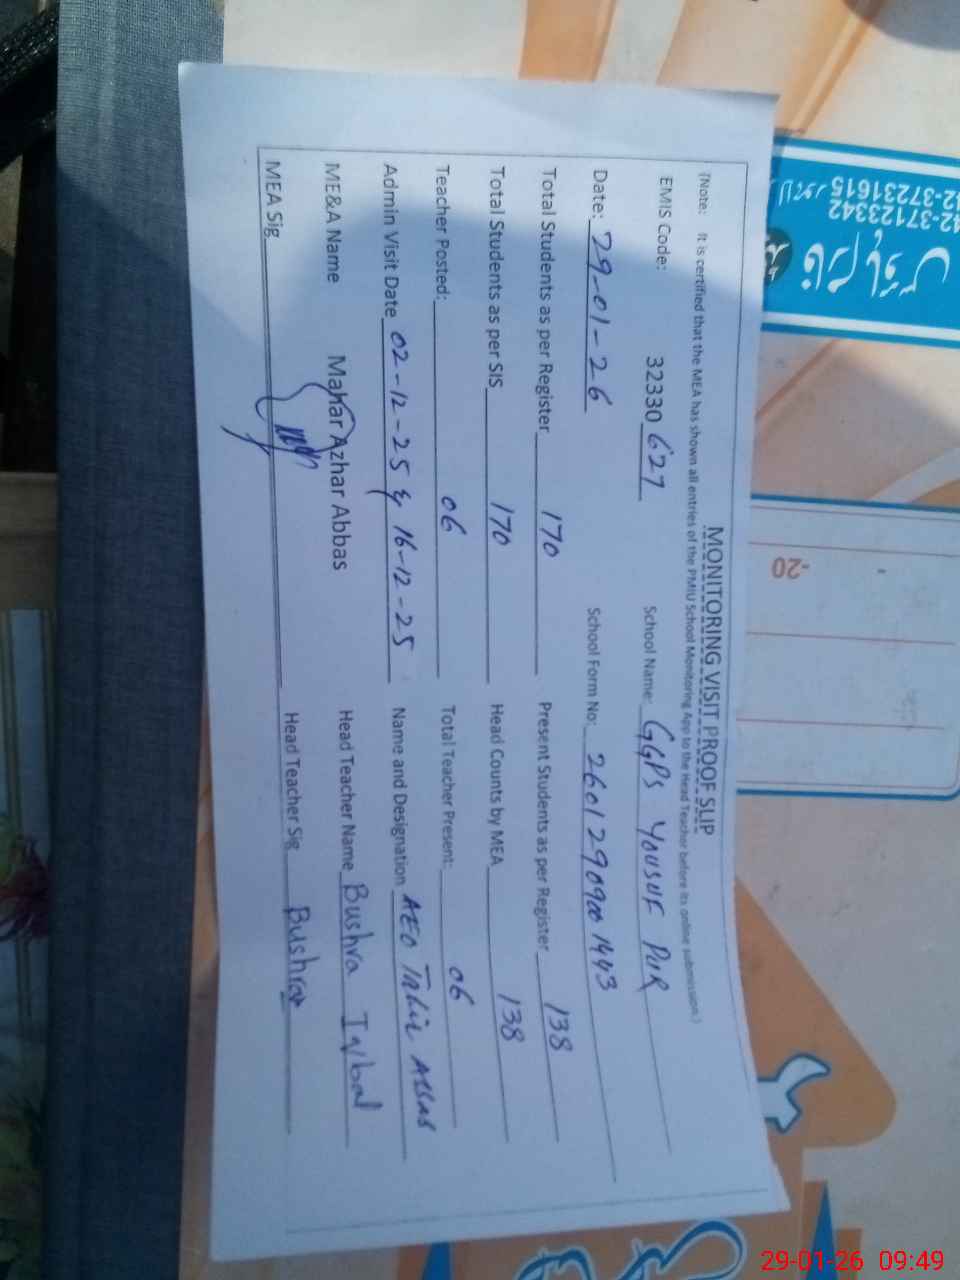 MONITORING VISIT PROOF SLIP
(Note: It is certified that the MEA has shown all entries of the PMIU School Monitoring App to the Head Teacher before its online submission.)
EMIS Code: 32330627 School Name: GGPS YOUSUF PUR
Date: 29-01-26 School Form No: 26012909001443
Total Students as per Register 170 Present Students as per Register 138
Total Students as per SIS 170 Head Counts by MEA 138
Teacher Posted: 06 Total Teacher Present: 06
Admin Visit Date 02-12-25 & 16-12-25 Name and Designation AEO Tahir Abbas
ME&A Name Mahar Azhar Abbas Head Teacher Name Bushra Iqbal
MEA Sig Head Teacher Sig Bushra
42-37123342
42-37231615
-20
29-01-26 09:49